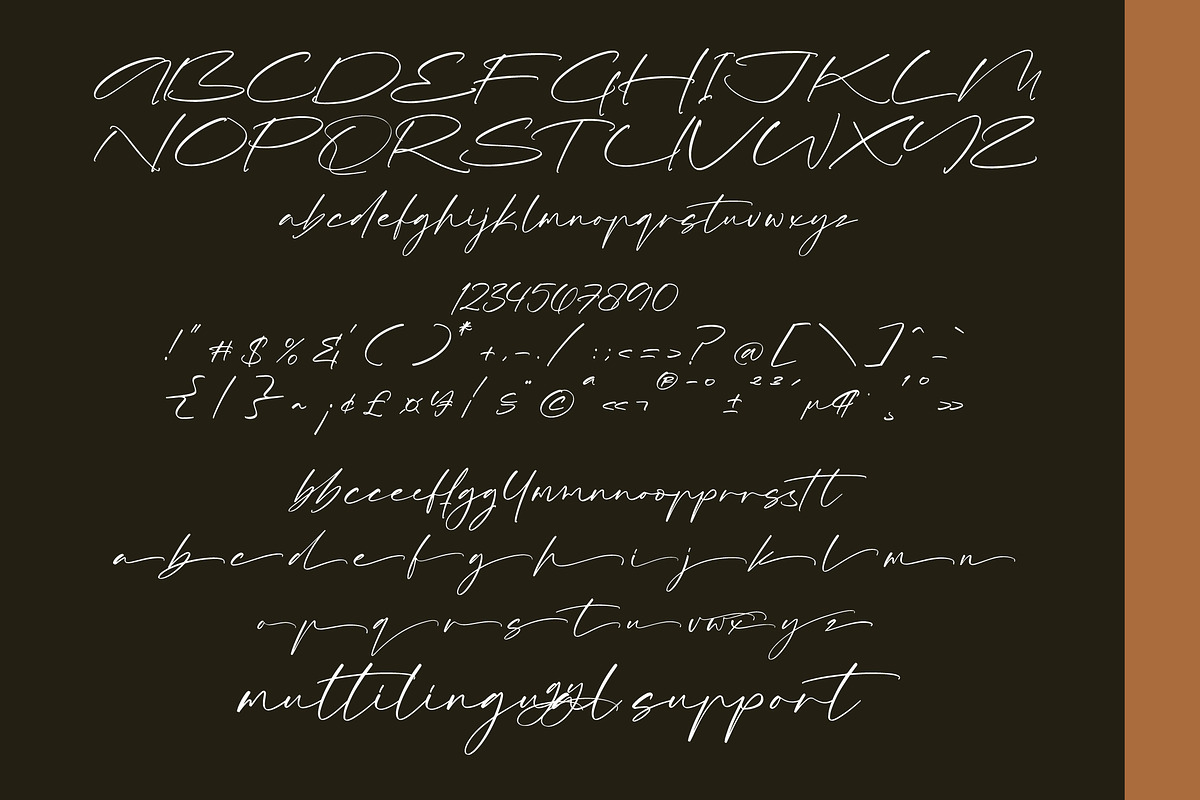 ABCDEFGHIJKLM
NOPQRSTUVWXYZ
abcdefghijklmnopqrstuvwxyz
1234567890
!"#$%&'()*+,-./:;<=>?@[\]^_`
{|}~¡¢£¤¥¦§¨©ª«¬®¯°±²³´µ¶·¸¹º»
bbcceeffggllmmnnoopprrssttt
abcdefghijklmn
opqrstuvwxyz
muttilingual support